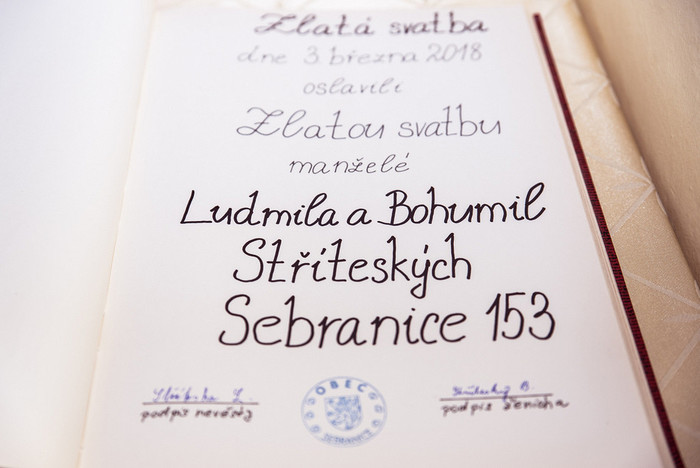 Zlatá svatba
dne 3 března 2018
oslavili
Zlatou svatbu
manželé
Ludmila a Bohumil
Stříteských
Sebranice 153
podpis nevěsty
OBEC
SEBRANICE
B.
podpis ženicha